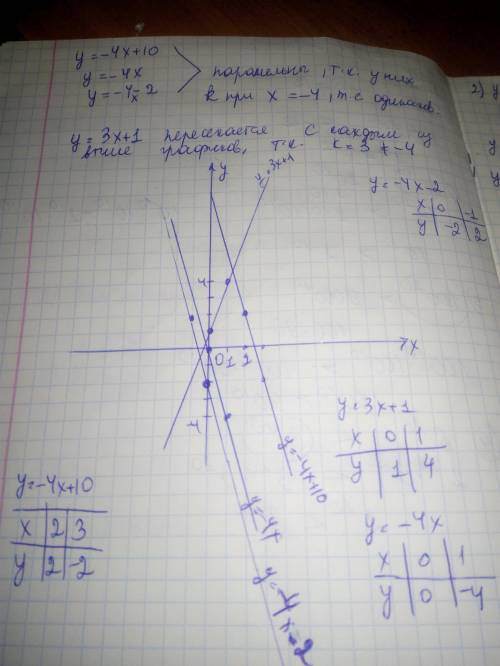 y = -4x+10
y = -4x
y = -4x-2
паралельны, т.к. у них
k при x = -4, т.е одинаков.
2) y
y
y
y = 3x+1 пересекается с каждым из
выше графиков, т.к. k = 3 ≠ -4
y = -4x-2
x | 0 | -1
y | -2 | 2
y
y = 3x+1
4
0 1 2
x
-4
y = -4x+10
y = -4x
y = -4x-2
y = 3x+1
x | 0 | 1
y | 1 | 4
y = -4x+10
x | 2 | 3
y | 2 | -2
y = -4x
x | 0 | 1
y | 0 | -4